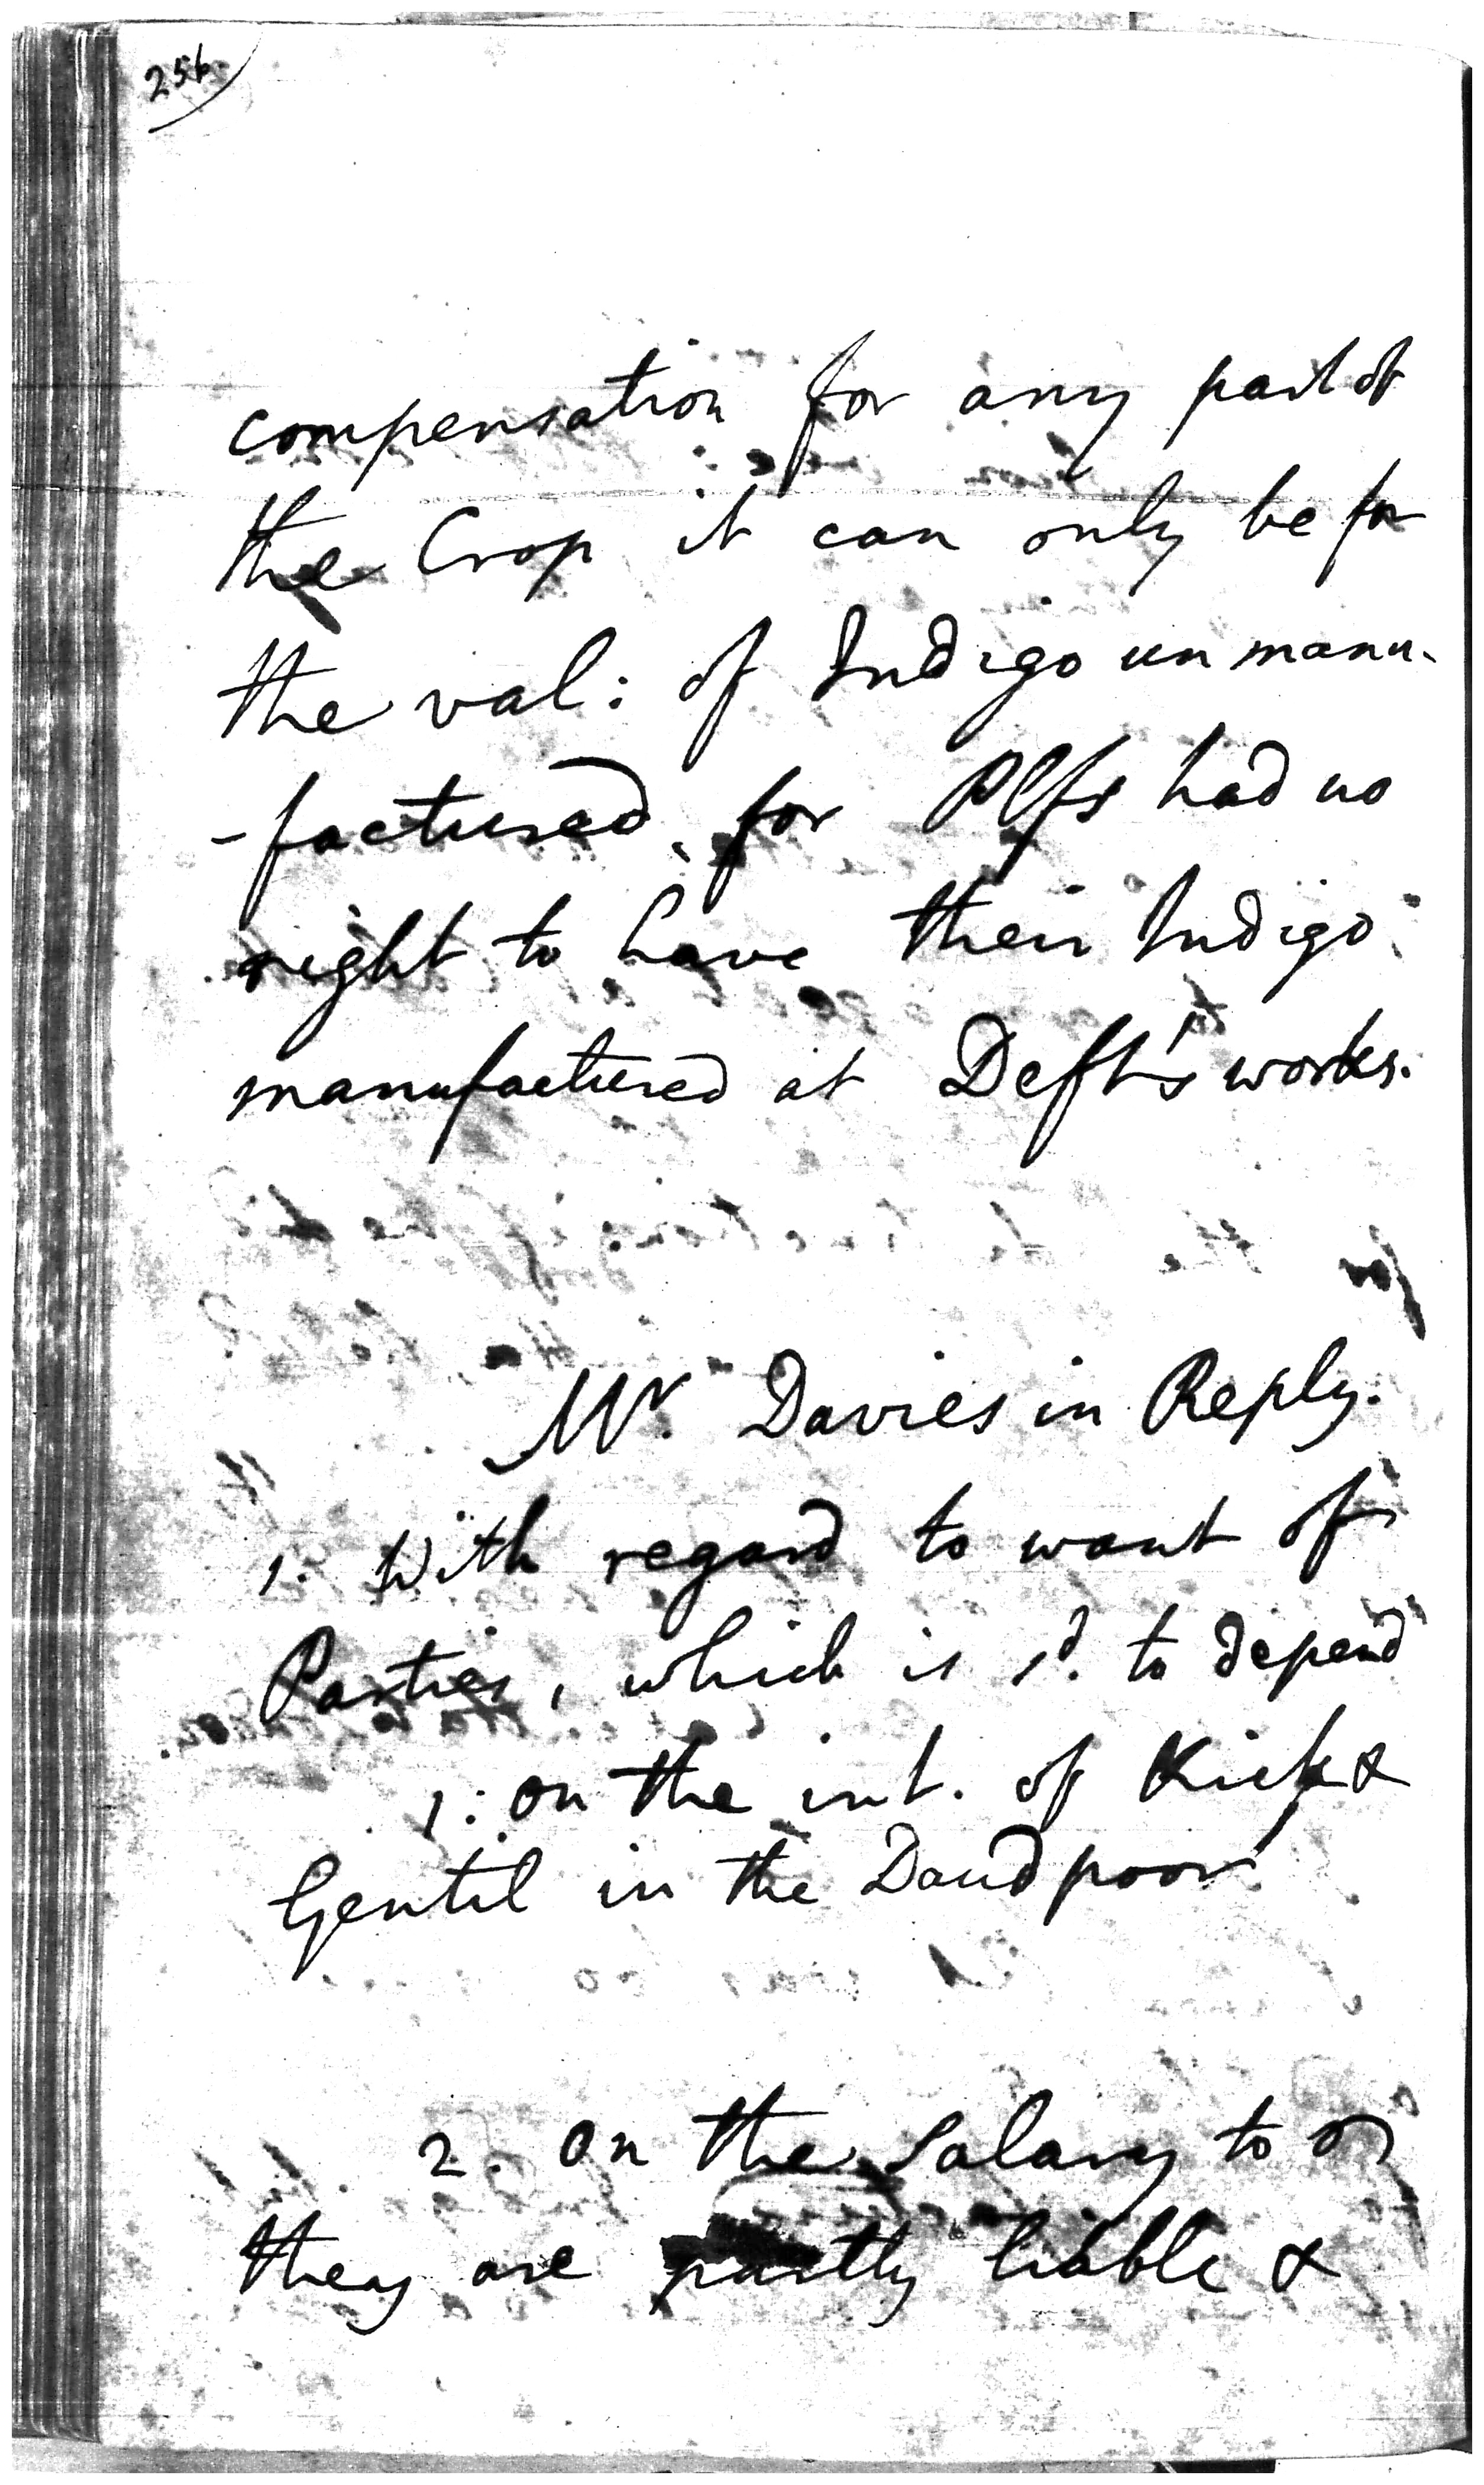 256
compensation for any part of
the Crop it can only be for
the val: of Indigo unmanu-
-factured, for Plfs had no
right to have their Indigo
manufactured at Deft's works.
Mr. Davies in Reply.
1. With regard to want of
Parties, which is sd. to depend
1: on the int. of Kick &
Gentil in the Daudpoor
2. On the Salary to
they are partly liable &